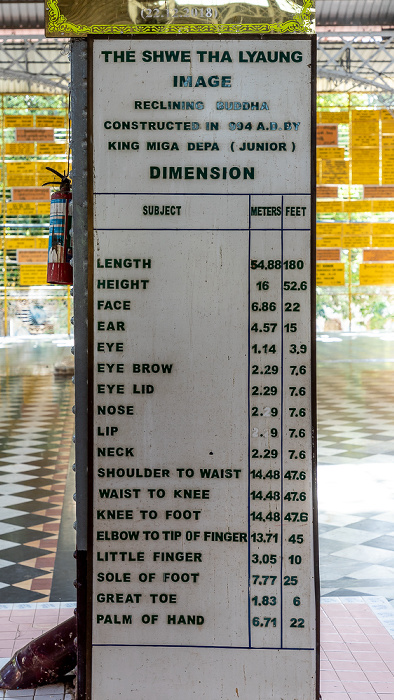 (22.12.2018)
THE SHWE THA LYAUNG
IMAGE
RECLINING BUDDHA
CONSTRUCTED IN 994 A.D. BY
KING MIGA DEPA ( JUNIOR )
DIMENSION
SUBJECT METERS FEET
LENGTH 54,88 180
HEIGHT 16 52.6
FACE 6.86 22
EAR 4.57 15
EYE 1.14 3,9
EYE BROW 2.29 7,6
EYE LID 2.29 7.6
NOSE 2. 9 7.6
LIP . 9 7.6
NECK 2.29 7.6
SHOULDER TO WAIST 14,48 47.6
WAIST TO KNEE 14.48 47.6
KNEE TO FOOT 14,48 47.6
ELBOW TO TIP OF FINGER 13.71 45
LITTLE FINGER 3,05 10
SOLE OF FOOT 7.77 25
GREAT TOE 1.83 6
PALM OF HAND 6.71 22